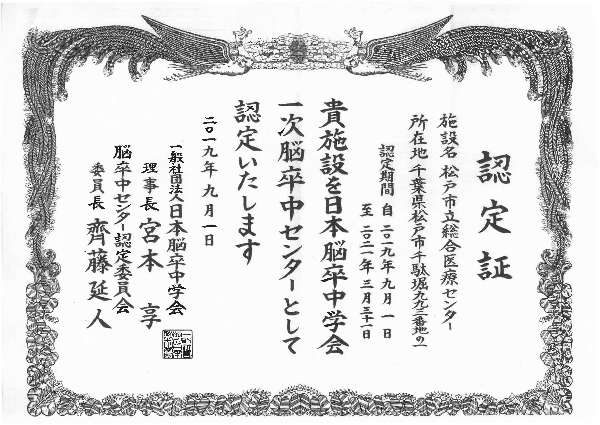 認定証
施設名 松戸市立総合医療センター
所在地 千葉県松戸市千駄堀九九三番地の一
認定期間 自 二〇一九年 九月 一日
至 二〇二一年 三月三十一日
貴施設を日本脳卒中学会
一次脳卒中センターとして
認定いたします
二〇一九年 九月 一日
一般社団法人日本脳卒中学会
理事長 宮本 享
脳卒中センター認定委員会
委員長 齊藤延人